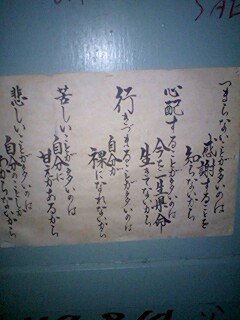 つまらないことが多いのは
感謝することを
知らないから
心配することが多いのは
今を一生懸命
生きてないから
行きづまることが多いのは
自分が
裸になれないから
苦しいことが多いのは
自分に
甘えがあるから
悲しいことが多いのは
自分の